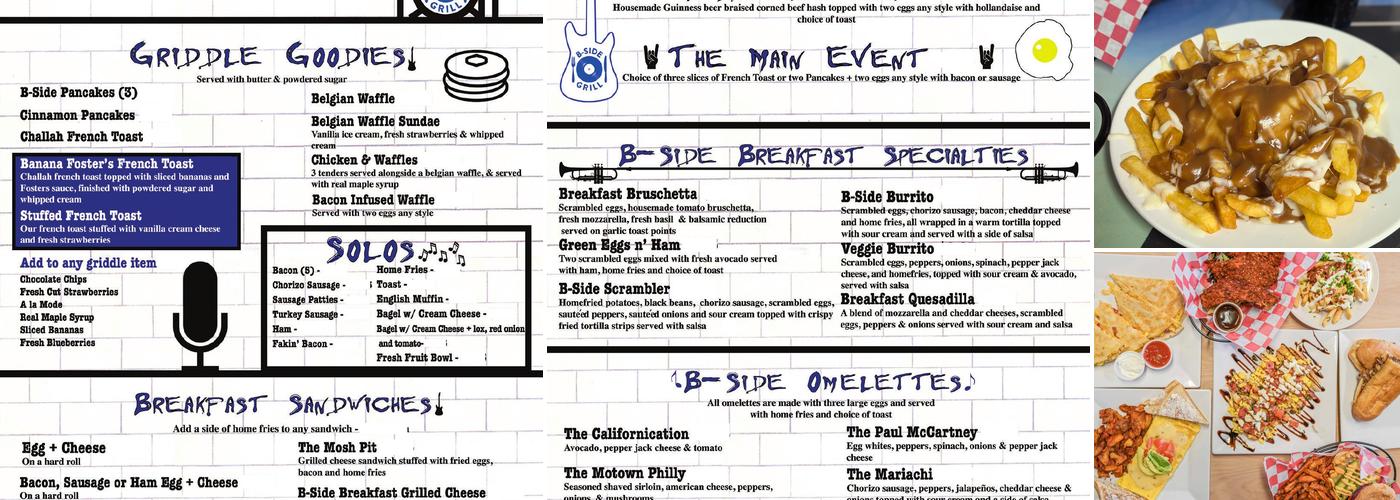 GRILL
GRIDDLE GOODIES
Served with butter & powdered sugar
B-Side Pancakes (3)
Cinnamon Pancakes
Challah French Toast
Banana Foster's French Toast
Challah french toast topped with sliced bananas and
Fosters sauce, finished with powdered sugar and
whipped cream
Stuffed French Toast
Our french toast stuffed with vanilla cream cheese
and fresh strawberries
Add to any griddle item
Chocolate Chips
Fresh Cut Strawberries
A la Mode
Real Maple Syrup
Sliced Bananas
Fresh Blueberries
Belgian Waffle
Belgian Waffle Sundae
Vanilla ice cream, fresh strawberries & whipped
cream
Chicken & Waffles
3 tenders served alongside a belgian waffle, & served
with real maple syrup
Bacon Infused Waffle
Served with two eggs any style
SOLOS
Bacon (5) -
Chorizo Sausage -
Sausage Patties -
Turkey Sausage -
Ham -
Fakin' Bacon -
Home Fries -
Toast -
English Muffin -
Bagel w/ Cream Cheese -
Bagel w/ Cream Cheese + lox, red onion
and tomato-
Fresh Fruit Bowl -
BREAKFAST SANDWICHES
Add a side of home fries to any sandwich -
Egg + Cheese
On a hard roll
Bacon, Sausage or Ham Egg + Cheese
On a hard roll
The Mosh Pit
Grilled cheese sandwich stuffed with fried eggs,
bacon and home fries
B-Side Breakfast Grilled Cheese
Housemade Guinness beer braised corned beef hash topped with two eggs any style with hollandaise and
choice of toast
B-SIDE
GRILL
THE MAIN EVENT
Choice of three slices of French Toast or two Pancakes + two eggs any style with bacon or sausage
B-SIDE BREAKFAST SPECIALTIES
Breakfast Bruschetta
Scrambled eggs, housemade tomato bruschetta,
fresh mozzarella, fresh basil & balsamic reduction
served on garlic toast points
Green Eggs n' Ham
Two scrambled eggs mixed with fresh avocado served
with ham, home fries and choice of toast
B-Side Scrambler
Homefried potatoes, black beans, chorizo sausage, scrambled eggs,
sautéed peppers, sautéed onions and sour cream topped with crispy
fried tortilla strips served with salsa
B-Side Burrito
Scrambled eggs, chorizo sausage, bacon, cheddar cheese
and home fries, all wrapped in a warm tortilla topped
with sour cream and served with a side of salsa
Veggie Burrito
Scrambled eggs, peppers, onions, spinach, pepper jack
cheese, and homefries, topped with sour cream & avocado,
served with salsa
Breakfast Quesadilla
A blend of mozzarella and cheddar cheeses, scrambled
eggs, peppers & onions served with sour cream and salsa
B-SIDE OMELETTES
All omelettes are made with three large eggs and served
with home fries and choice of toast
The Californication
Avocado, pepper jack cheese & tomato
The Motown Philly
Seasoned shaved sirloin, american cheese, peppers,
onions, & mushrooms
The Paul McCartney
Egg whites, peppers, spinach, onions & pepper jack
cheese
The Mariachi
Chorizo sausage, peppers, jalapeños, cheddar cheese &
onions topped with sour cream and a side of salsa